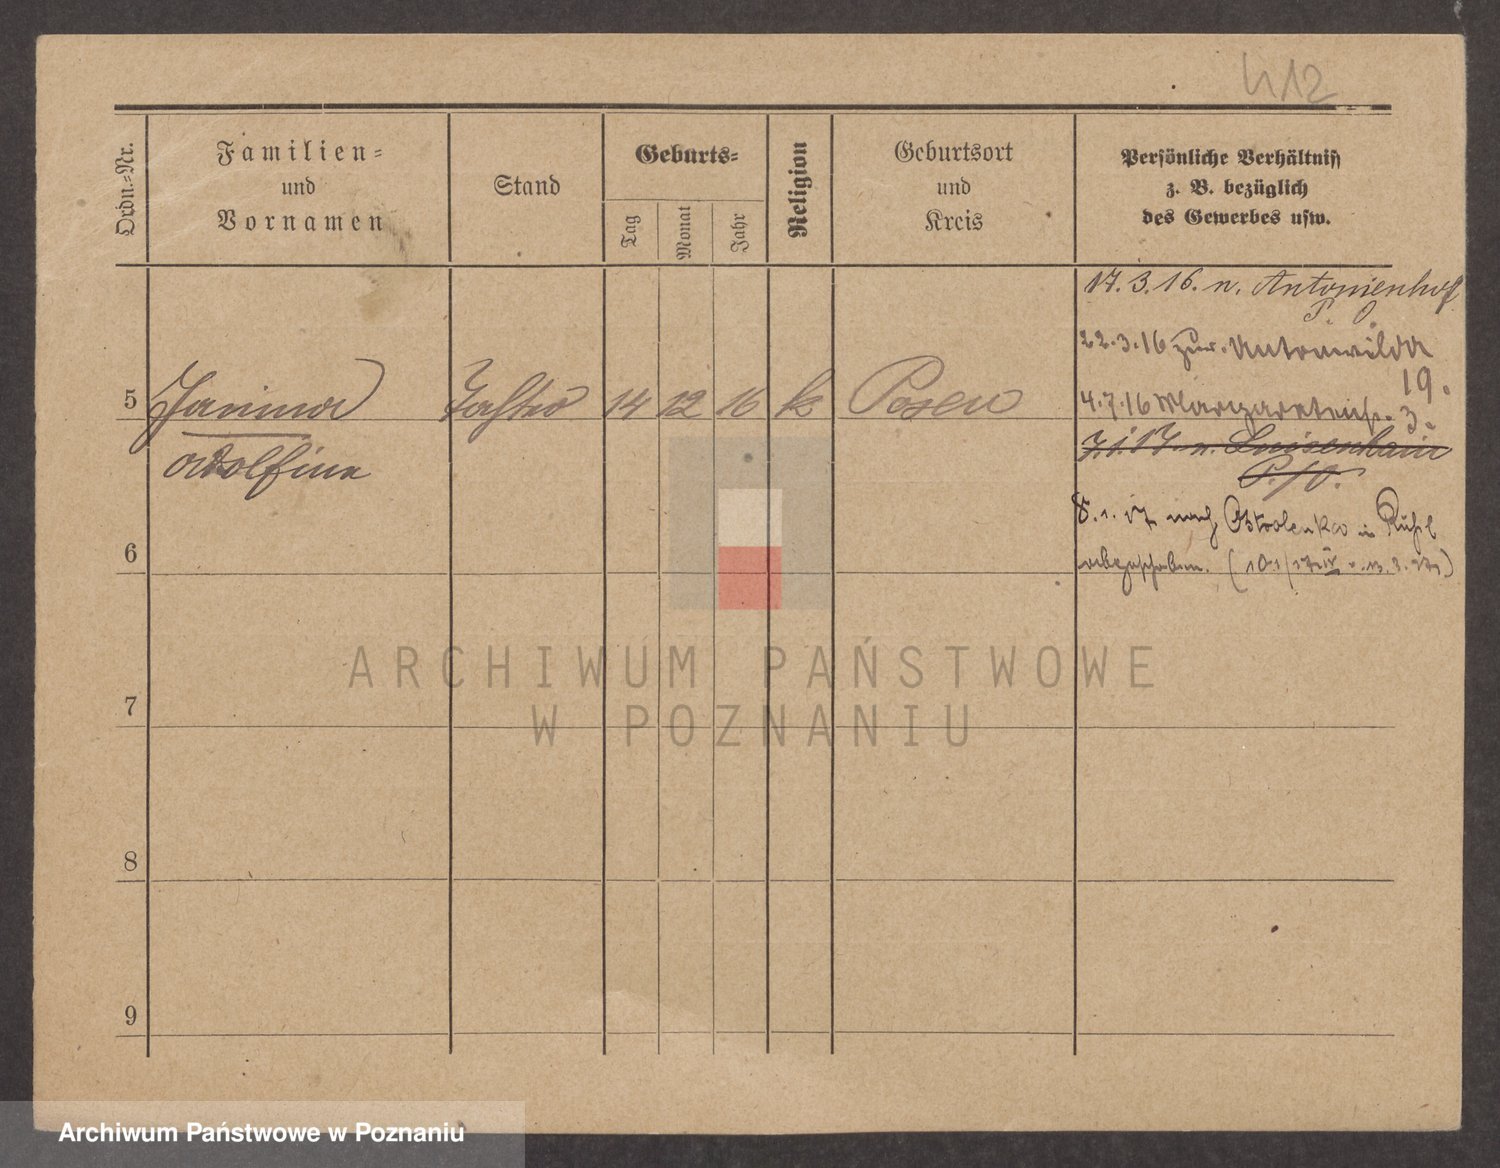 412
Ordn.=Nr.
Familien=
und
Vornamen
Stand
Geburts=
Tag
Monat
Jahr
Religion
Geburtsort
und
Kreis
Persönliche Verhältniss
z. B. bezüglich
des Gewerbes usw.
17. 3. 16. n. Antonienhof
P. O
22.3.16 zur. Untermilda
19.
4.7.16 Margaretenst. 3.
5 Janina 14 12 16 k Posen
7.1.17 n. Luisenhain
P. O.
Adolfina
8. 1. 17 nach Ostrolenka in Rußl
abgeschoben. (
6
ARCHIWUM PAŃSTWOWE
W POZNANIU
7
8
9
Archiwum Państwowe w Poznaniu